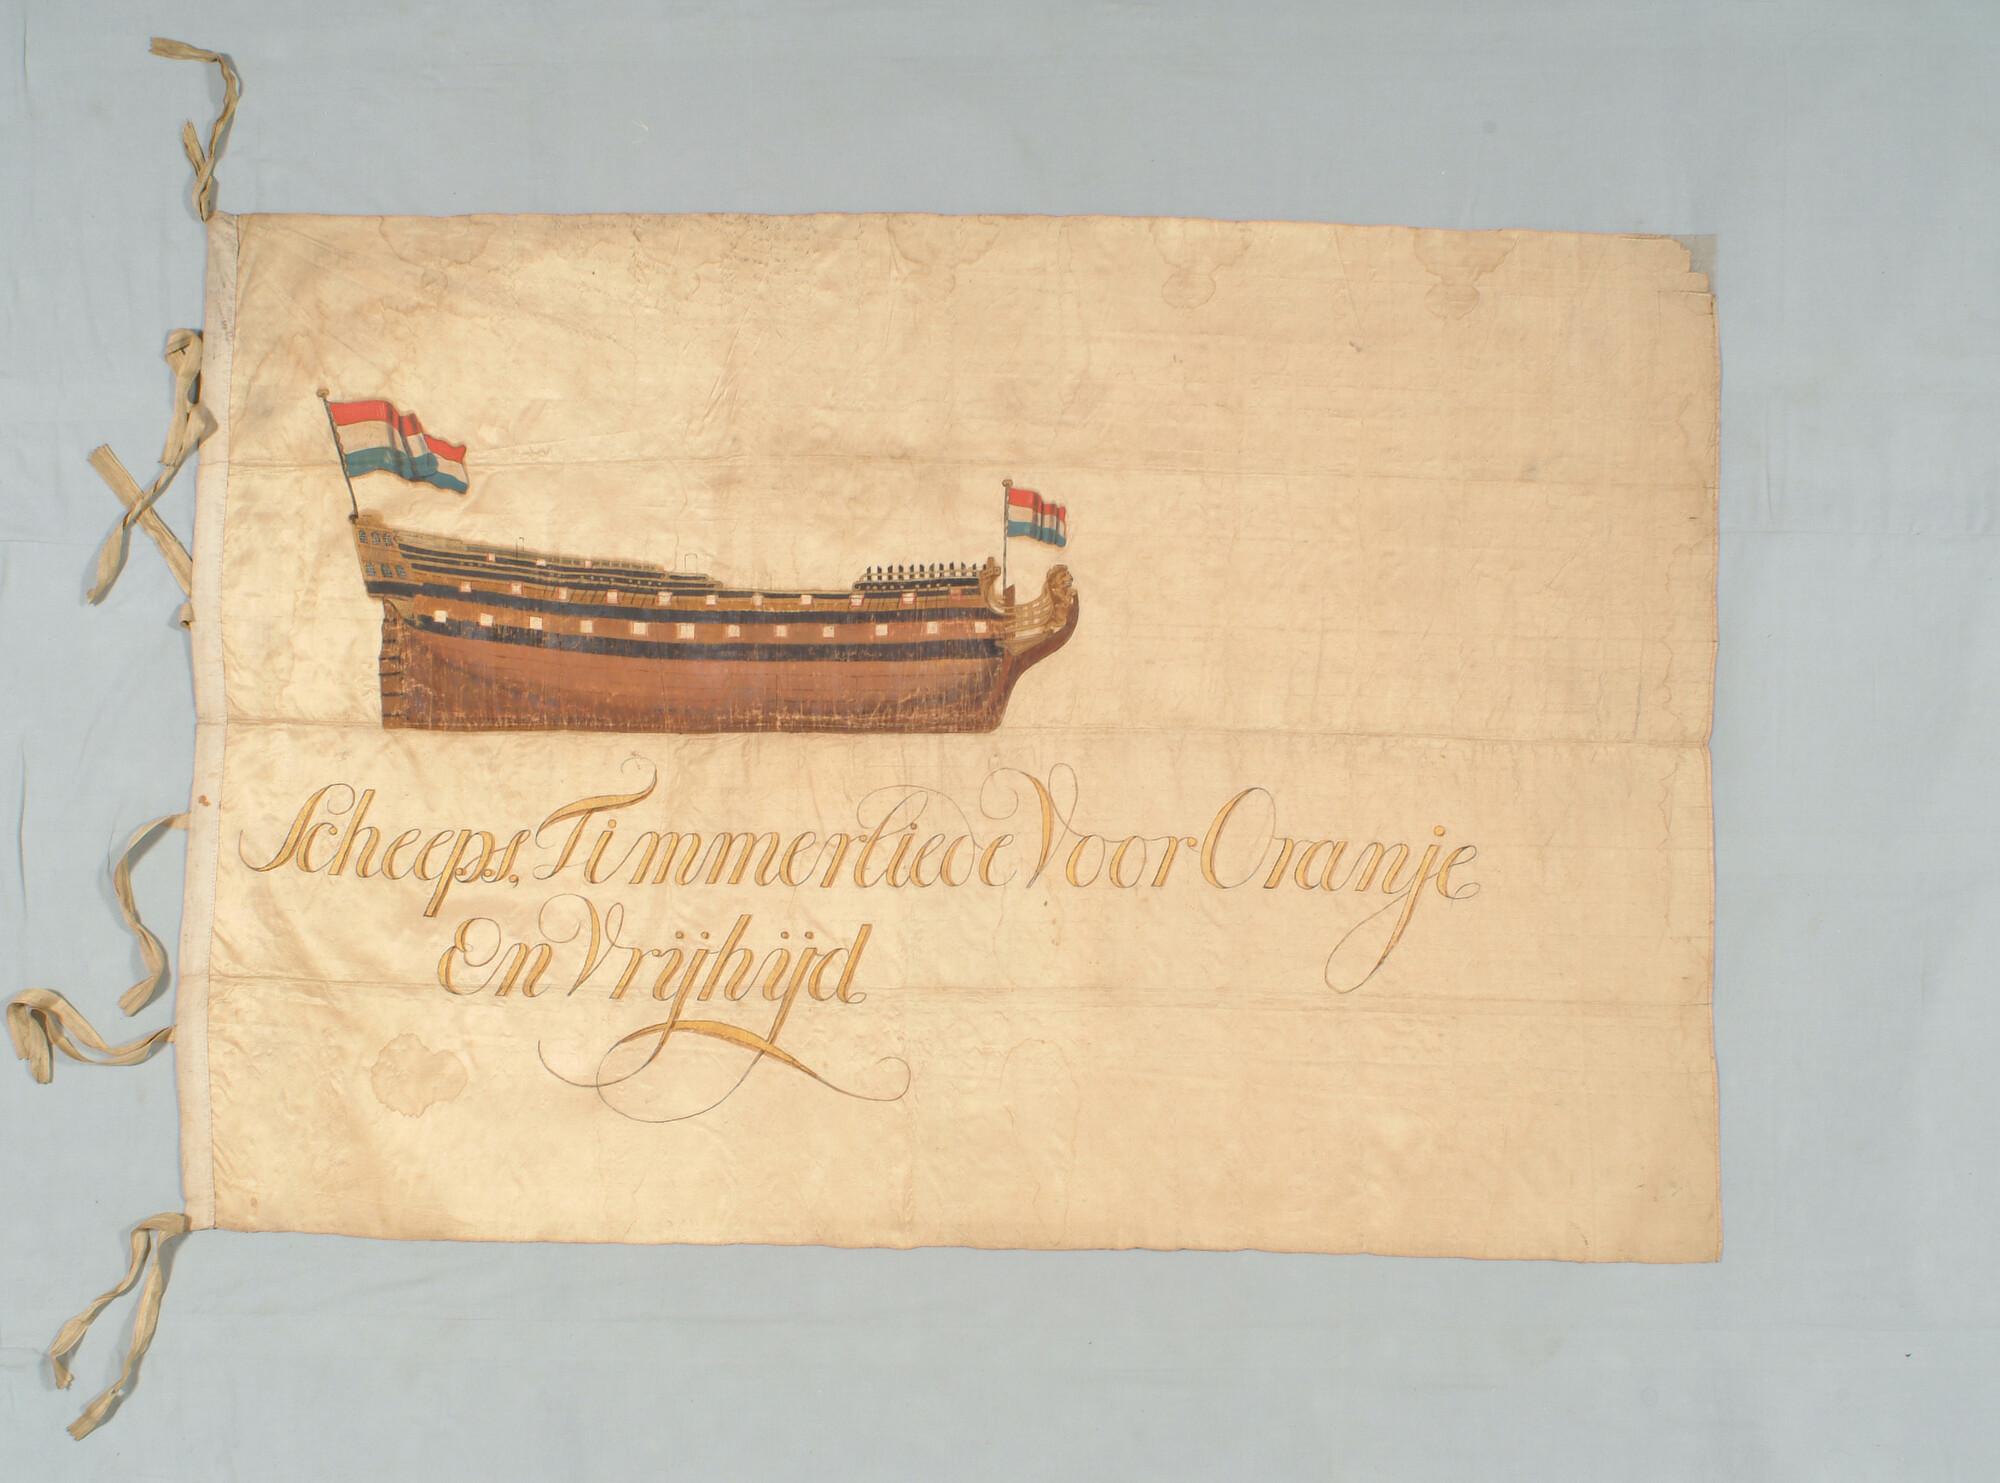 Scheeps, Timmerliede Voor Oranje
En Vrijhijd